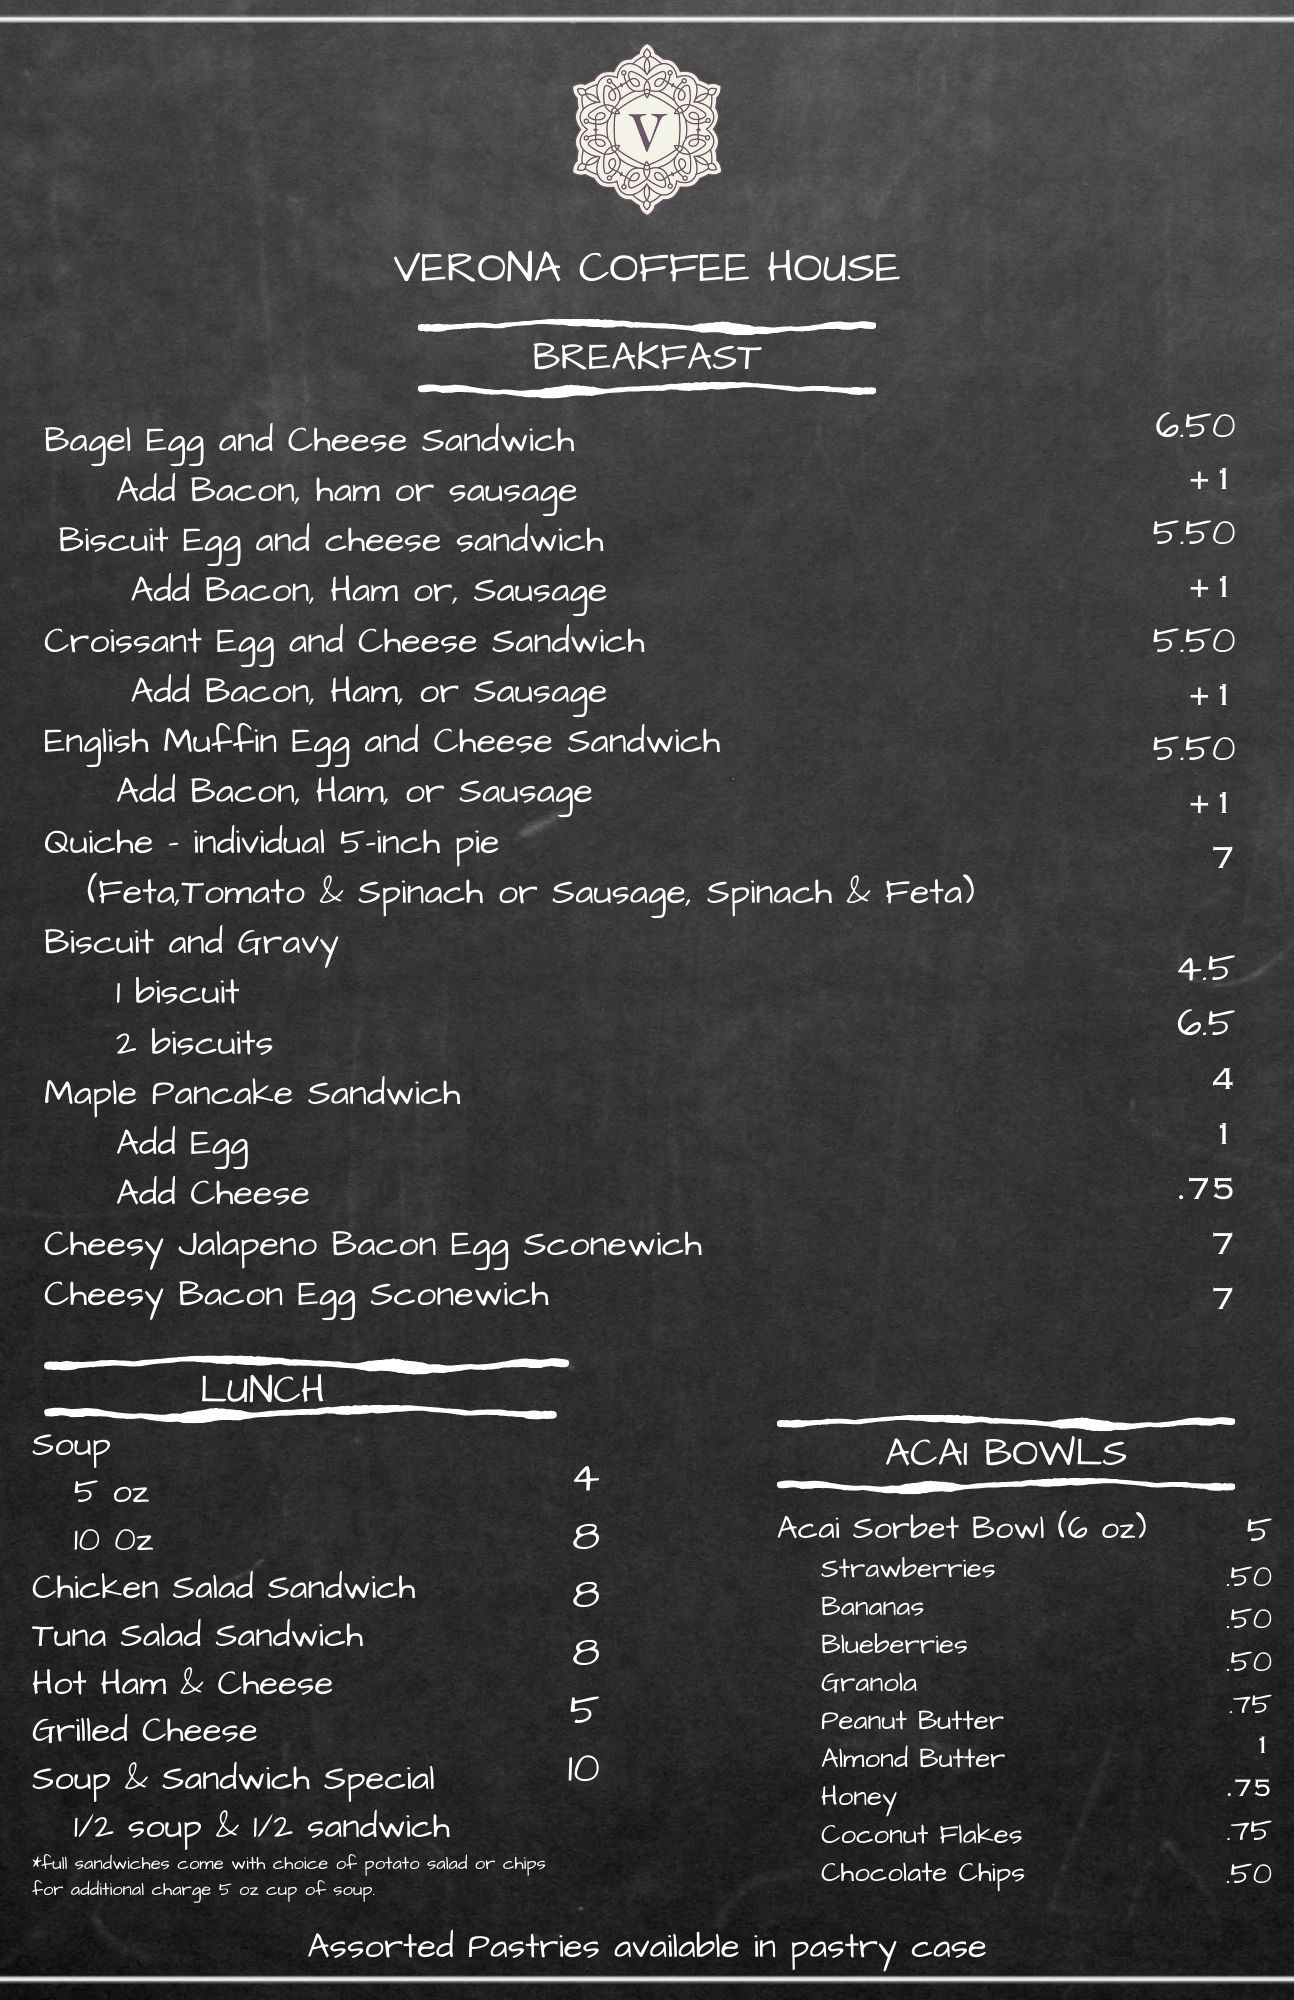 V
VERONA COFFEE HOUSE
BREAKFAST
Bagel Egg and Cheese Sandwich 6.50
Add Bacon, ham or sausage +1
Biscuit Egg and cheese sandwich 5.50
Add Bacon, Ham or, Sausage +1
Croissant Egg and Cheese Sandwich 5.50
Add Bacon, Ham, or Sausage +1
English Muffin Egg and Cheese Sandwich 5.50
Add Bacon, Ham, or Sausage +1
Quiche - individual 5-inch pie 7
(Feta,Tomato & Spinach or Sausage, Spinach & Feta)
Biscuit and Gravy
1 biscuit 4.5
2 biscuits 6.5
Maple Pancake Sandwich 4
Add Egg 1
Add Cheese .75
Cheesy Jalapeno Bacon Egg Sconewich 7
Cheesy Bacon Egg Sconewich 7
LUNCH
Soup
5 oz 4
10 Oz 8
Chicken Salad Sandwich 8
Tuna Salad Sandwich 8
Hot Ham & Cheese
Grilled Cheese 5
Soup & Sandwich Special 10
1/2 soup & 1/2 sandwich
*full sandwiches come with choice of potato salad or chips
for additional charge 5 oz cup of soup.
ACAI BOWLS
Acai Sorbet Bowl (6 oz) 5
Strawberries .50
Bananas .50
Blueberries .50
Granola .75
Peanut Butter 1
Almond Butter .75
Honey .75
Coconut Flakes .50
Chocolate Chips
Assorted Pastries available in pastry case